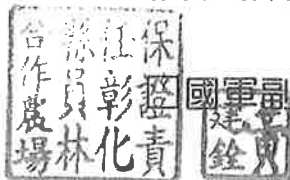 保證責
任彰化
縣員林
合作農場
國軍副
建銓